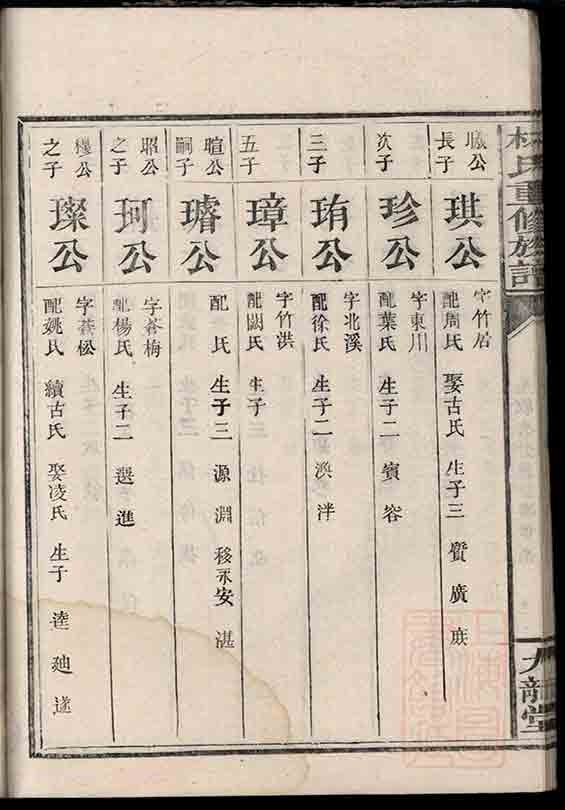 林氏重修族譜
九龍堂
曦公長子
琪公
字竹居
配周氏 娶古氏 生子三 質 廣
次子
珍公
字東川
配葉氏 生子二 賓 容
三子
珛公
字北溪
配徐氏 生子二 渙 泮
五子
璋公
字竹洪
配闕氏 生子
暄公嗣子
璿公
配 氏 生子三 源 淵 移永安 湛
昭公之子
珂公
字蒼梅
配楊氏 生子二 選 進
之子
璨公
字蒼松
配姚氏 續古氏 娶凌氏 生子 達 廸 遂